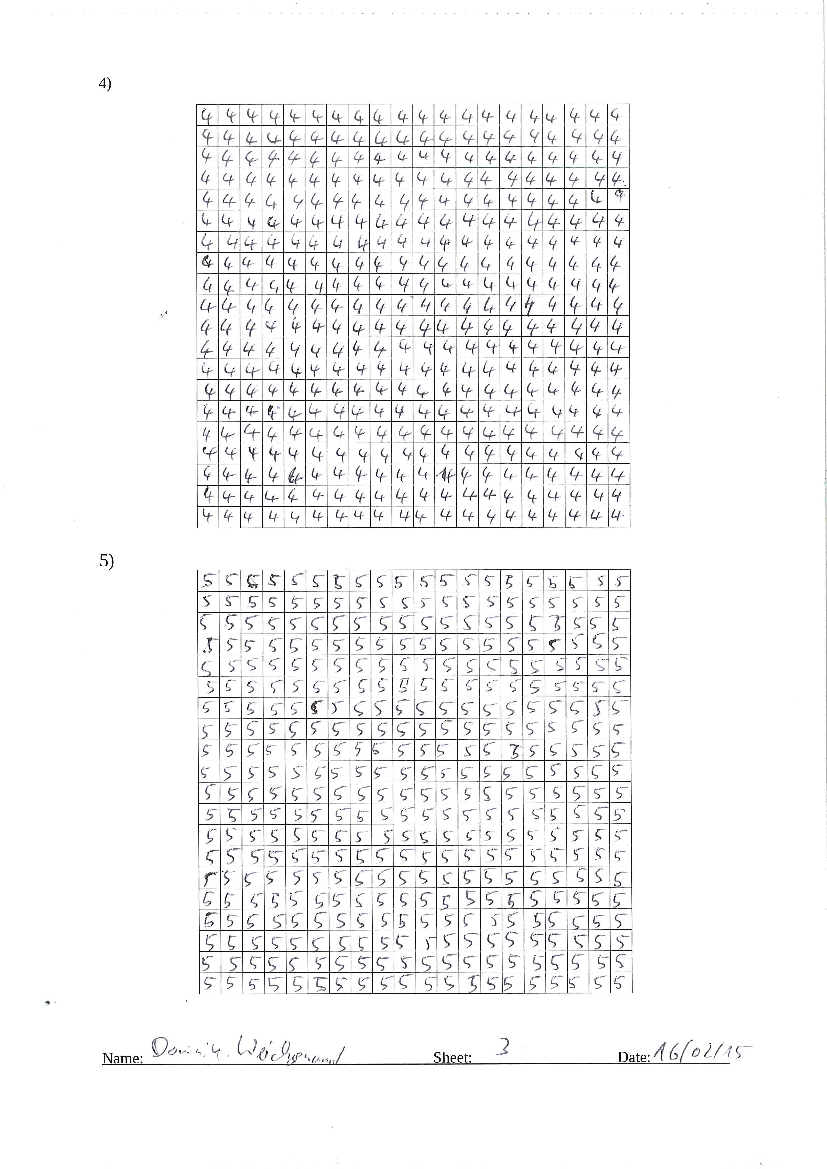 4)
4 4 4 4 4 4 4 4 4 4 4 4 4 4 4 4 4 4 4 4
4 4 4 4 4 4 4 4 4 4 4 4 4 4 4 4 4 4 4 4
4 4 4 4 4 4 4 4 4 4 4 4 4 4 4 4 4 4 4 4
4 4 4 4 4 4 4 4 4 4 4 4 4 4 4 4 4 4 4 4
4 4 4 4 4 4 4 4 4 4 4 4 4 4 4 4 4 4 4 4
4 4 4 4 4 4 4 4 4 4 4 4 4 4 4 4 4 4 4 4
4 4 4 4 4 4 4 4 4 4 4 4 4 4 4 4 4 4 4 4
4 4 4 4 4 4 4 4 4 4 4 4 4 4 4 4 4 4 4 4
4 4 4 4 4 4 4 4 4 4 4 4 4 4 4 4 4 4 4 4
4 4 4 4 4 4 4 4 4 4 4 4 4 4 4 4 4 4 4 4
4 4 4 4 4 4 4 4 4 4 4 4 4 4 4 4 4 4 4 4
4 4 4 4 4 4 4 4 4 4 4 4 4 4 4 4 4 4 4 4
4 4 4 4 4 4 4 4 4 4 4 4 4 4 4 4 4 4 4 4
4 4 4 4 4 4 4 4 4 4 4 4 4 4 4 4 4 4 4 4
4 4 4 4 4 4 4 4 4 4 4 4 4 4 4 4 4 4 4 4
4 4 4 4 4 4 4 4 4 4 4 4 4 4 4 4 4 4 4 4
4 4 4 4 4 4 4 4 4 4 4 4 4 4 4 4 4 4 4 4
4 4 4 4 4 4 4 4 4 4 4 4 4 4 4 4 4 4 4 4
4 4 4 4 4 4 4 4 4 4 4 4 4 4 4 4 4 4 4 4
4 4 4 4 4 4 4 4 4 4 4 4 4 4 4 4 4 4 4 4
5)
5 5 5 5 5 5 5 5 5 5 5 5 5 5 5 5 5 5 5 5
5 5 5 5 5 5 5 5 5 5 5 5 5 5 5 5 5 5 5 5
5 5 5 5 5 5 5 5 5 5 5 5 5 5 5 5 5 5 5 5
5 5 5 5 5 5 5 5 5 5 5 5 5 5 5 5 5 5 5 5
5 5 5 5 5 5 5 5 5 5 5 5 5 5 5 5 5 5 5 5
5 5 5 5 5 5 5 5 5 5 5 5 5 5 5 5 5 5 5 5
5 5 5 5 5 5 5 5 5 5 5 5 5 5 5 5 5 5 5 5
5 5 5 5 5 5 5 5 5 5 5 5 5 5 5 5 5 5 5 5
5 5 5 5 5 5 5 5 5 5 5 5 5 5 5 5 5 5 5 5
5 5 5 5 5 5 5 5 5 5 5 5 5 5 5 5 5 5 5 5
5 5 5 5 5 5 5 5 5 5 5 5 5 5 5 5 5 5 5 5
5 5 5 5 5 5 5 5 5 5 5 5 5 5 5 5 5 5 5 5
5 5 5 5 5 5 5 5 5 5 5 5 5 5 5 5 5 5 5 5
5 5 5 5 5 5 5 5 5 5 5 5 5 5 5 5 5 5 5 5
5 5 5 5 5 5 5 5 5 5 5 5 5 5 5 5 5 5 5 5
5 5 5 5 5 5 5 5 5 5 5 5 5 5 5 5 5 5 5 5
5 5 5 5 5 5 5 5 5 5 5 5 5 5 5 5 5 5 5 5
5 5 5 5 5 5 5 5 5 5 5 5 5 5 5 5 5 5 5 5
5 5 5 5 5 5 5 5 5 5 5 5 5 5 5 5 5 5 5 5
5 5 5 5 5 5 5 5 5 5 5 5 5 5 5 5 5 5 5 5
Name: Dominik Sheet: 3 Date: 16/02/15